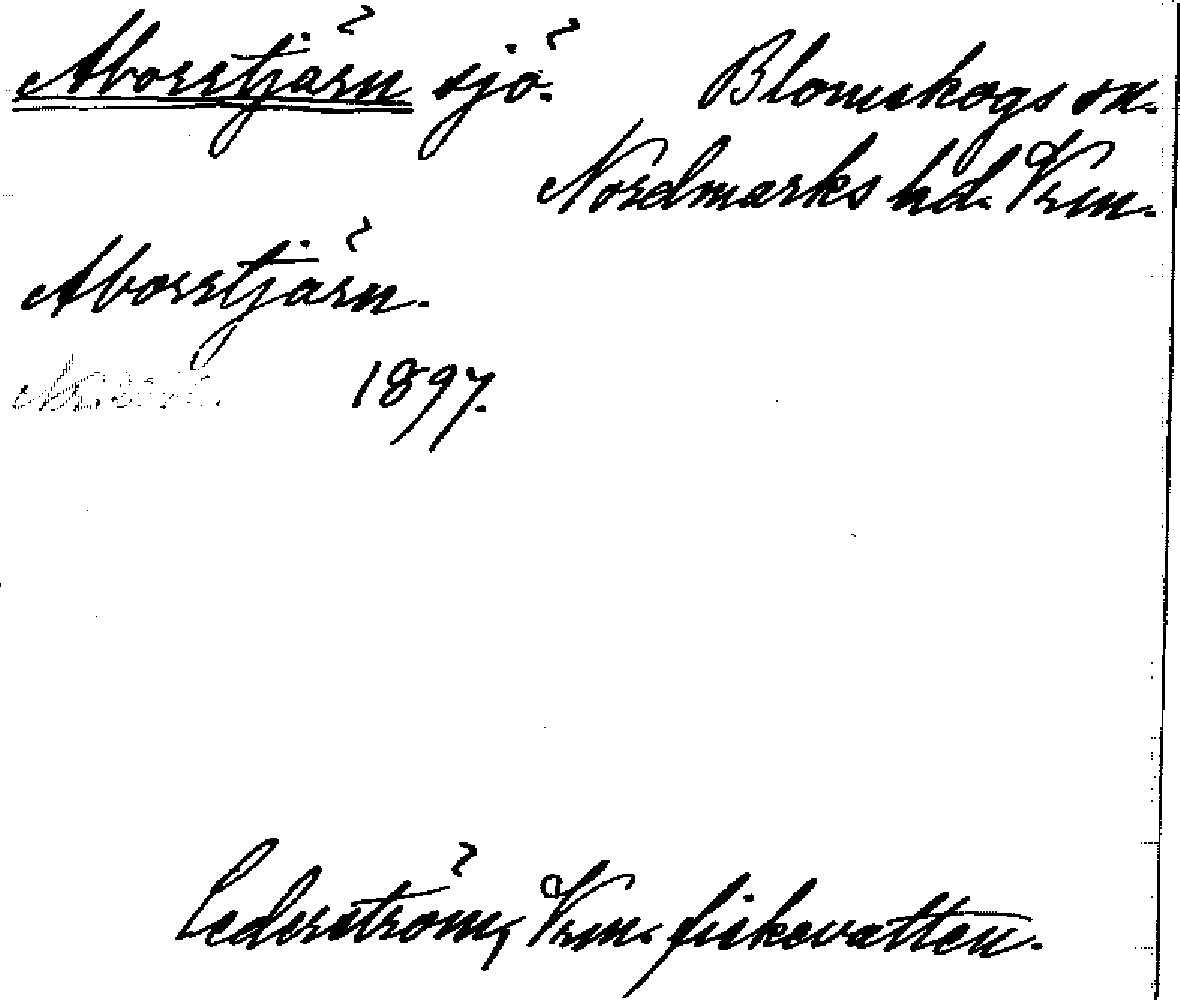 Aborrtjärn sjö. Blomskogs sn.
Nordmarks hd. Vrm.
Aborrtjärn.
1897.
Cederström, Vrm. fiskevatten.